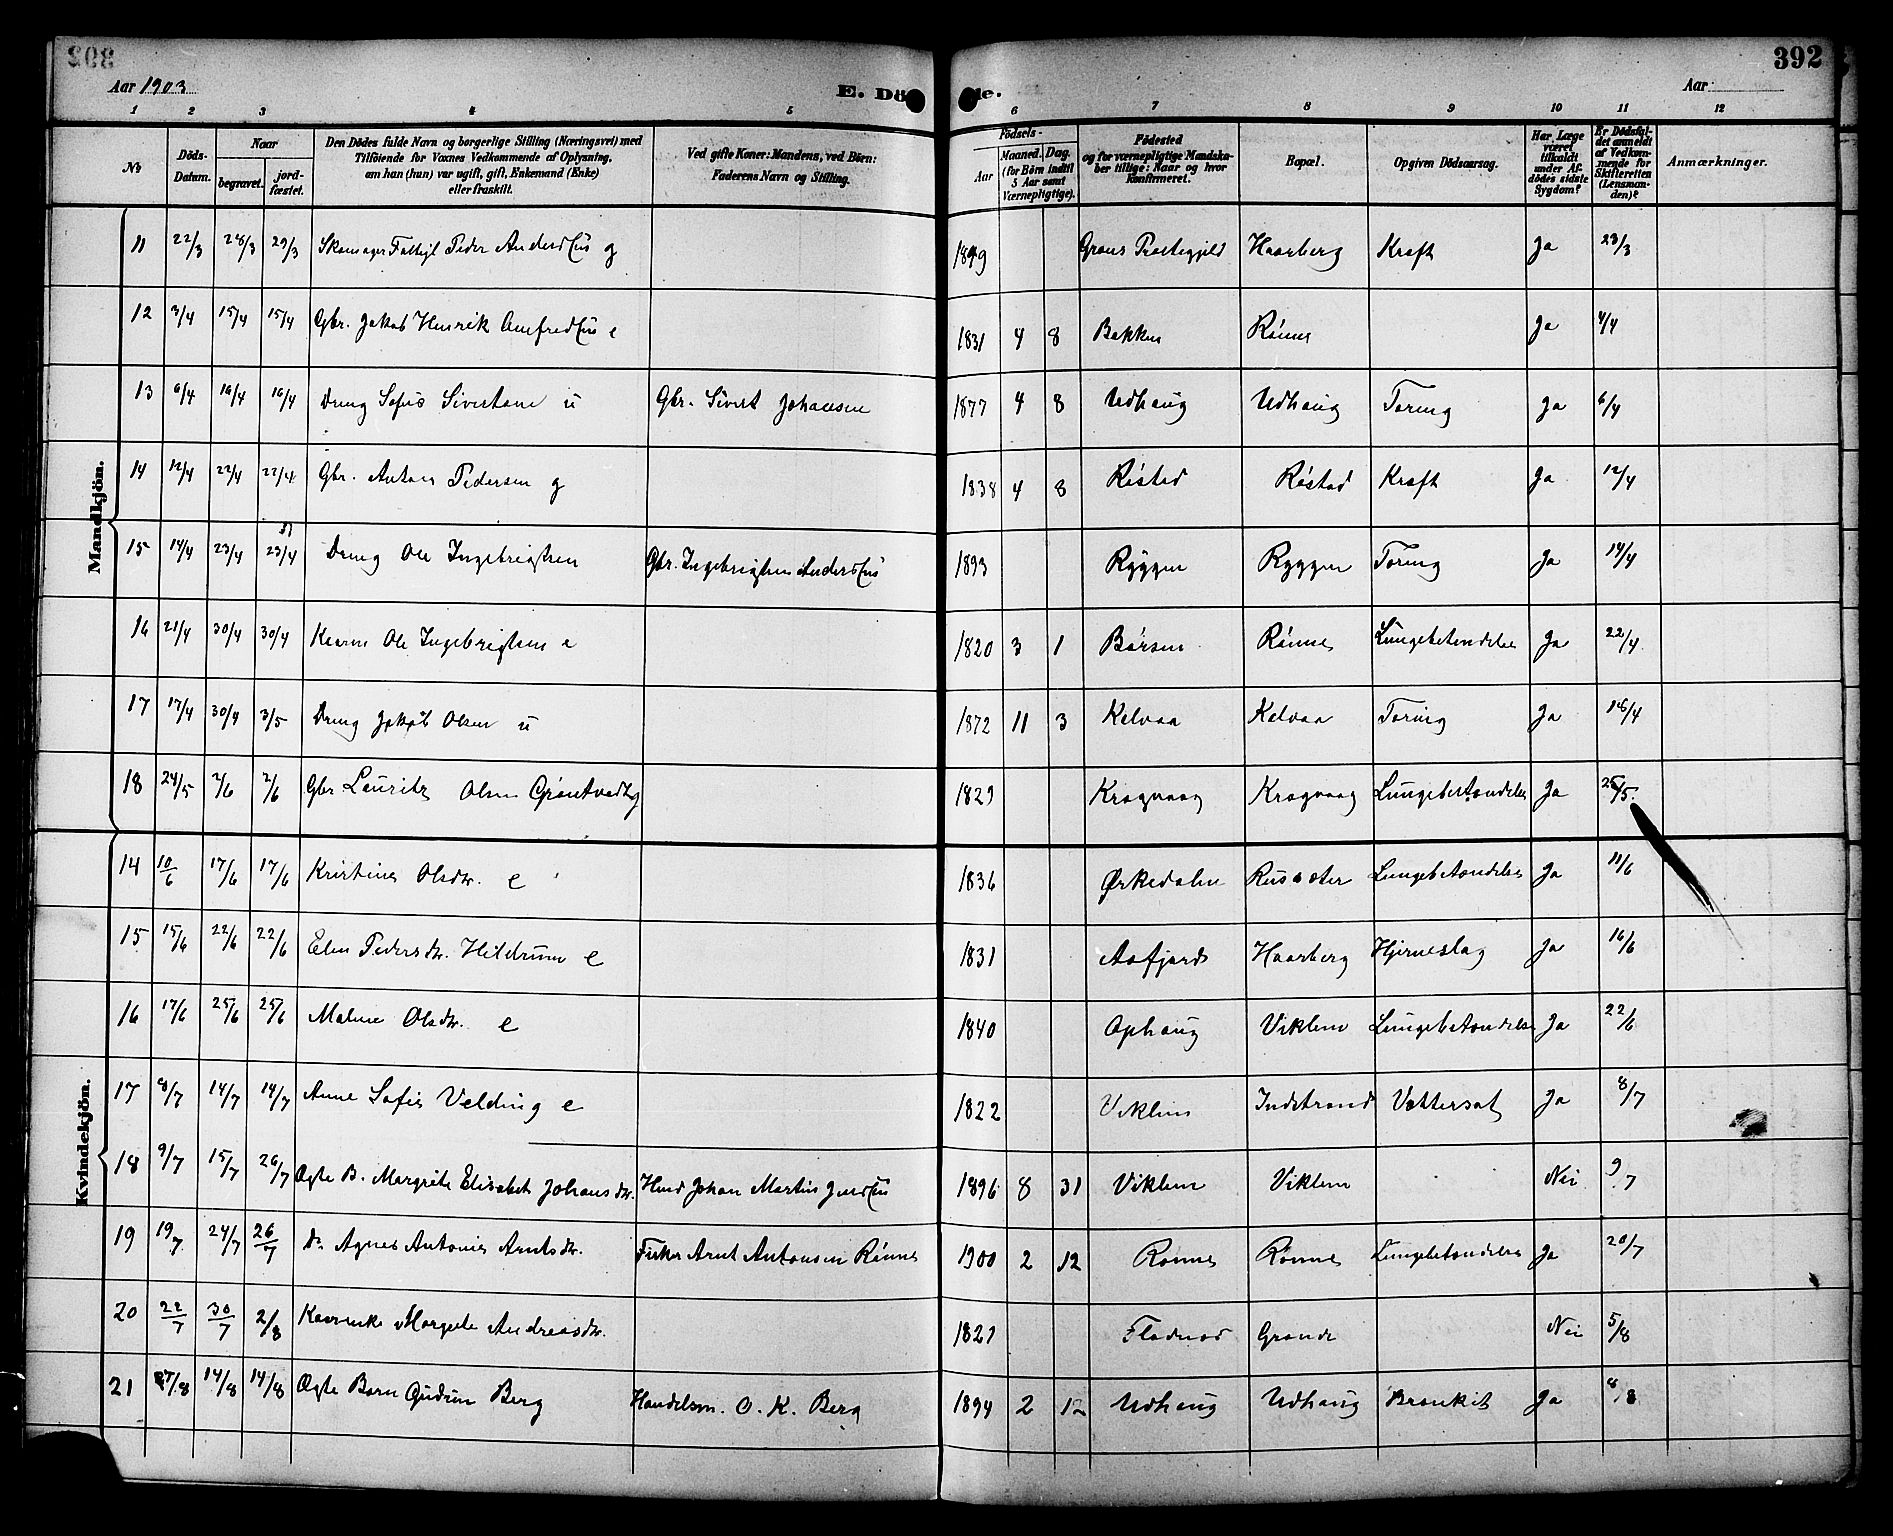 392
Aar 1903
E. Dö de.
Aar
1 2 3 4 5 6 7 8 9 10 11 12
№
Döds-Datum.
Naar
begravet.
jord-fæstet.
Den Dödes fulde Navn og borgerlige Stilling (Næringsvei) med
Tilföiende for Voxnes Vedkommende af Oplysning,
om han (hun) var ugift, gift, Enkemand (Enke)
eller fraskilt.
Ved gifte Koner: Mandens, ved Börn:
Faderens Navn og Stilling.
Födsels-
Aar
Maaned. Dag.
(for Börn indtil
5 Aar samt
Værnepligtige).
Födested
og for værnepligtige Mandska-
ber tillige: Naar og hvor
konfirmeret.
Bopæl.
Opgiven Dödsaarsag.
Har Læge
været
tilkaldt
under Af-
dödes sidste
Sygdom?
Er Dödsfal-
det anmeldt
af Vedkom-
mende for
Skifteretten
(Lensman-
den)?
Anmærkninger.
Mandkjön.
11 22/3 28/3 29/3 Skomager Peder g 1849 Haarberg Kræft Ja 23/3
12 3/4 15/4 15/4 Gbr. Jakob Henrik e 1831 4 8 Bakken Rønne Ja 4/4
13 6/4 16/4 16/4 Dreng Sofus Sivertsen u Gbr. Sivert Johansen 1877 4 8 Udhaug Udhaug Tæring Ja 6/4
14 12/4 22/4 22/4 Gbr. Anton Pedersen g 1838 4 8 Røstad Røstad Kræft Ja 12/4
15 14/4 23/4 23/4 Dreng Ole Ingebrigtsen Gbr. Ingebrigtsen 1893 Ryggen Ryggen Tæring Ja 14/4
16 21/4 30/4 30/4 Ole Ingebrigtsen e 1820 3 1 Børsen Rønne Lungebetændelse Ja 22/4
17 17/4 30/4 3/5 Dreng Jakob Olsen u 1872 11 3 Kelvaa Kelvaa Tæring Ja 18/4
18 24/5 2/6 2/6 Gbr Lauritz Olsen 1829 Kragvaag Kragvaag Lungebetændelse Ja 25/5.
Kvindekjön.
14 10/6 17/6 17/6 Kristine Olsdtr. e 1836 Ørkedalen Lungebetændelse Ja 11/6
15 15/6 22/6 22/6 Elen Pedersdtr. Hildrum e 1831 Aafjord Haarberg Hjerneslag Ja 16/6
16 17/6 25/6 25/6 Malene Olsdtr. e 1840 Ophaug Viklem Lungebetændelse Ja 22/6
17 8/7 14/7 14/7 Anne Sofie Velding e 1822 Viklem Indstrand Vattersot Ja 8/7
18 9/7 15/7 26/7 Ægte B. Margrete Elisabet Johansdtr. Johan Martin 1896 8 31 Viklem Viklem Nei 9/7
19 19/7 24/7 26/7 Do Agnes Antonie Arntsdtr. Fisker Arnt Antonsen Rønne 1900 2 12 Rønne Rønne Lungebetændelse Ja 20/7
20 22/7 30/7 2/8 Margrete Andreasdtr. 1821 Fladnes Grande Nei 5/8
21 7/8 14/8 14/8 Ægte Barn Gudrun Berg Handelsm. O. K. Berg 1894 2 12 Udhaug Udhaug Bronkit Ja 8/8